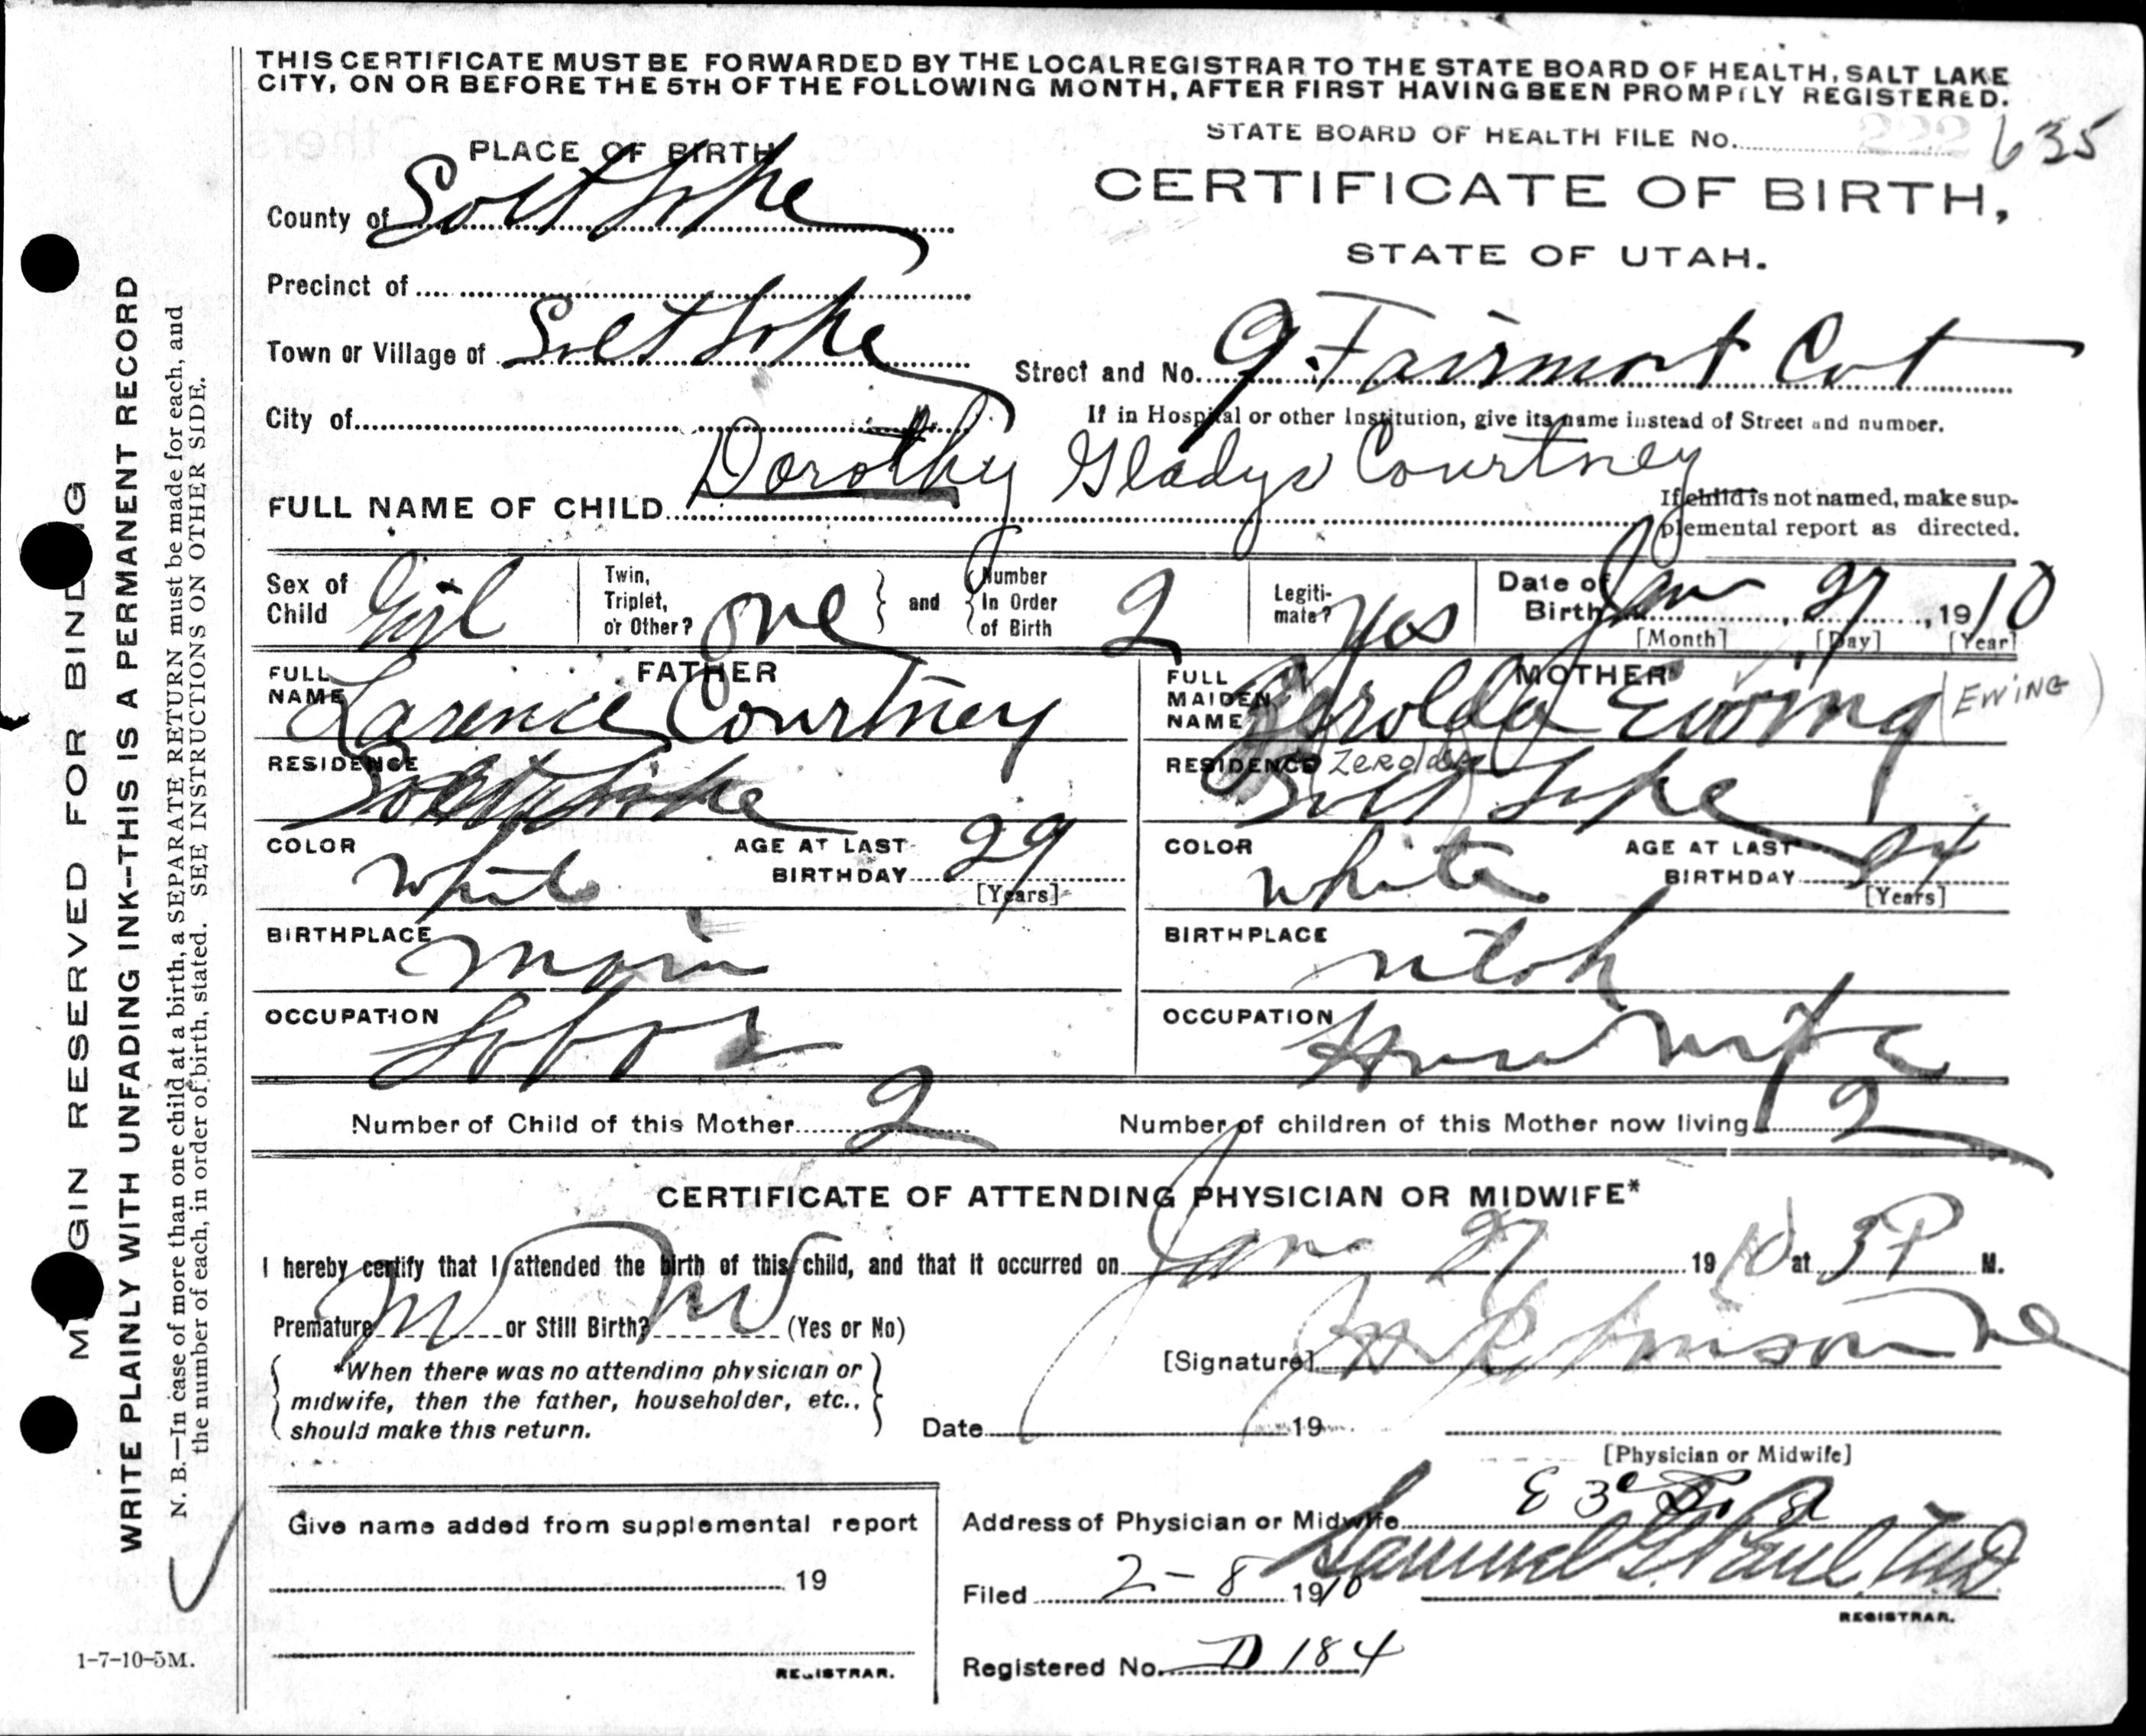 THIS CERTIFICATE MUST BE FORWARDED BY THE LOCAL REGISTRAR TO THE STATE BOARD OF HEALTH, SALT LAKE
CITY, ON OR BEFORE THE 5TH OF THE FOLLOWING MONTH, AFTER FIRST HAVING BEEN PROMPTLY REGISTERED.
STATE BOARD OF HEALTH FILE No. 222 635
PLACE OF BIRTH
CERTIFICATE OF BIRTH,
County of Salt Lake
STATE OF UTAH.
Precinct of
Town or Village of Salt Lake
Street and No. 9 Fairmont
City of
If in Hospital or other Institution, give its name instead of Street and number.
FULL NAME OF CHILD Dorothy Gladys Courtney
If child is not named, make sup-
plemental report as directed.
Sex of Child Girl
Twin, Triplet, or Other? one
and
Number In Order of Birth 2
Legiti-mate? Yes
Date of Birth Jan 27, 1910
[Month] [Day] [Year]
FATHER
FULL NAME Larence Courtney
RESIDENCE Salt Lake
COLOR White
AGE AT LAST BIRTHDAY 29
[Years]
BIRTHPLACE
OCCUPATION Labor
MOTHER
FULL MAIDEN NAME Zerolda Ewing (EWING)
RESIDENCE (Zerolda) Salt Lake
COLOR White
AGE AT LAST BIRTHDAY 24
[Years]
BIRTHPLACE Utah
OCCUPATION Housewife
Number of Child of this Mother 2
Number of children of this Mother now living 2
CERTIFICATE OF ATTENDING PHYSICIAN OR MIDWIFE*
I hereby certify that I attended the birth of this child, and that it occurred on Jan 27 1910 at 3 P M.
Premature No or Still Birth? No (Yes or No)
*When there was no attending physician or
midwife, then the father, householder, etc.,
should make this return.
[Signature]
Date 19
[Physician or Midwife]
Give name added from supplemental report
19
REGISTRAR.
Address of Physician or Midwife
Filed 2-8 1910 Samuel G. Paul, M.D.
REGISTRAR.
Registered No. D 184
1-7-10-5M.
MARGIN RESERVED FOR BINDING
WRITE PLAINLY WITH UNFADING INK--THIS IS A PERMANENT RECORD
N. B.—In case of more than one child at a birth, a SEPARATE RETURN must be made for each, and
the number of each, in order of birth, stated. SEE INSTRUCTIONS ON OTHER SIDE.